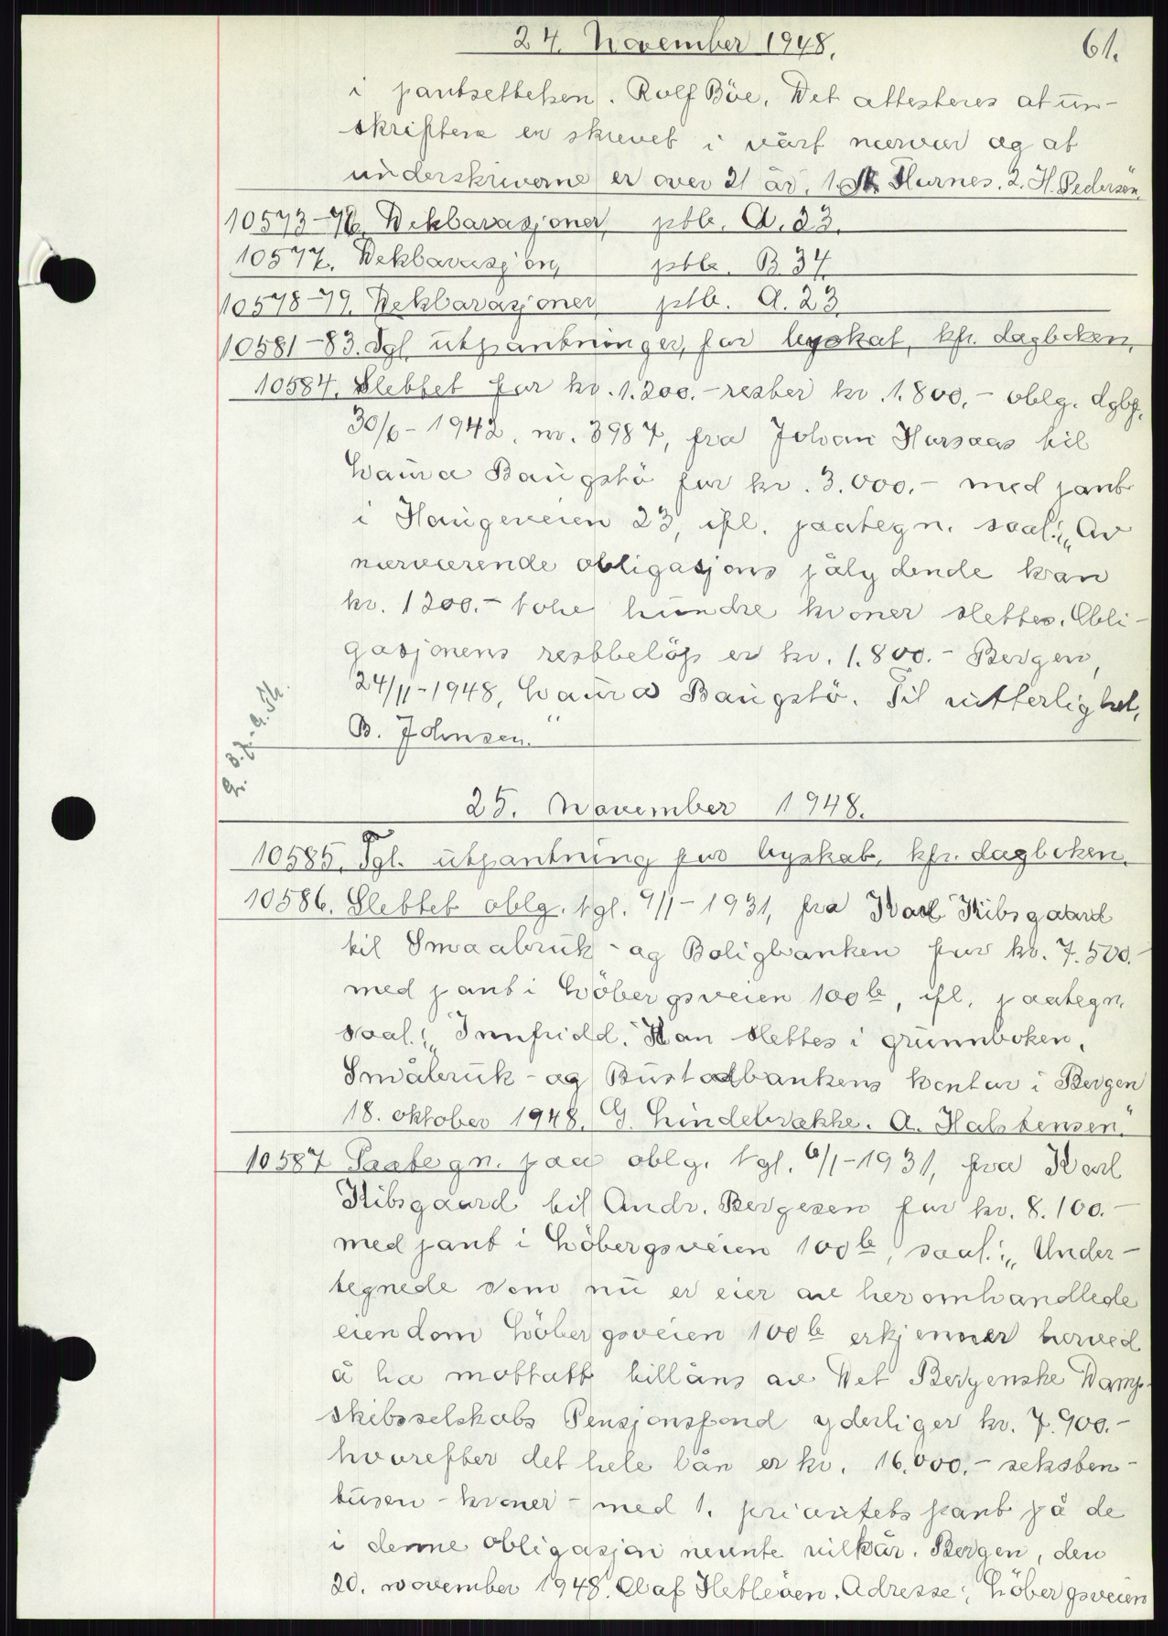 24. November 1948.
61.
i pantsettelsen. Rolf Böe. Det attesteres at un-
skriftene er skrevet i vårt nærvær og at
underskriverne er over 21 år. 1. Hurnes. 2. H. Pedersen.
10573-76. Deklarasjoner, ptb. A. 23.
10577. Deklarasjon, ptb. B 34.
10578-79. Deklarasjoner ptb. A. 23.
10581-83. Tgl. utpantninger, for byskat, kfr. dagboken.
10584. Slettet for kr. 1.200.- rester kr. 1.800.- oblg. dgbf.
30/6-1942. nr. 3987, fra Johan Harsaas til
Laura Baugstö for kr. 3.000.- med pant
i Haugeveien 23, ifl. paategn. saal.: „Av
nærværende obligasjons pålydende kan
kr. 1200.- tolv hundre kroner slettes. Obli-
gasjonens restbeløp er kr. 1.800.- Bergen,
24/11-1948, Laura Baugstö. Til vitterlighet,
B. Johnsen."
25. November 1948.
10585. Tgl. utpantning for byskat, kfr. dagboken.
10586. Slettet oblg. tgl. 9/1-1931, fra Karl Kibsgaard
til Smaabruk- og Boligbanken for kr. 7.500.-
med pant i Löbergsveien 100b, ifl. paategn.
saal.: „Innfridd. Kan slettes i grunnboken.
Småbruk- og Bustadbankens kontor i Bergen
18. oktober 1948. G. Lindebrække. A. Halstensen."
10587 Paategn. paa oblg. tgl. 6/1-1931, fra Karl
Kibsgaard til Andr. Bergesen for kr. 8.100.-
med pant i Löbergsveien 100b, saal.: „Under-
tegnede som nu er eier av heromhandlede
eiendom Löbergsveien 100b erkjenner herved
å ha mottatt tillåns av Det Bergenske Damp-
skibsselskabs Pensjonsfond yderliger kr. 7.900.-
hvorefter det hele lån er kr. 16.000.- seksten-
tusen-kroner- med 1. prioritets pant på de
i denne obligasjon nevnte vilkår. Bergen, den
20. november 1948. Olaf Hetleöen. Adresse: Löbergsveien